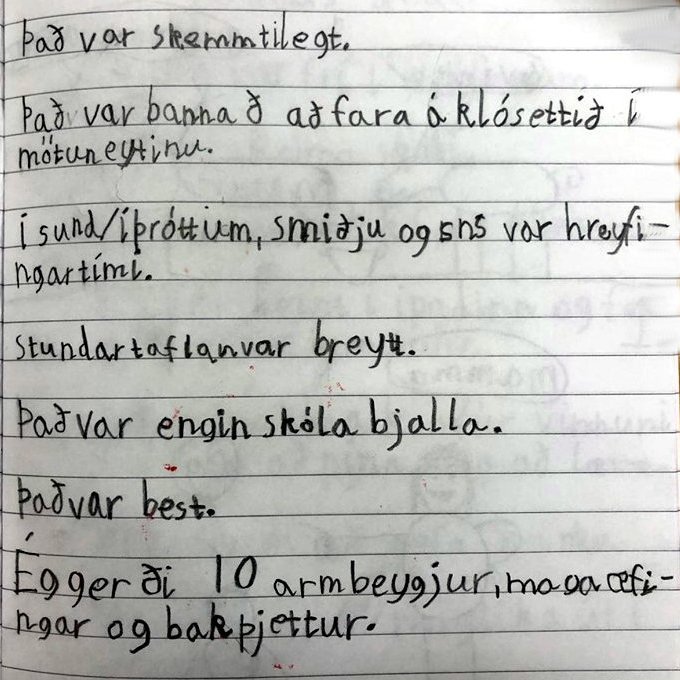 Það var skemmtilegt.
Það var bannað að fara á klósettið í
mötuneytinu.
í sund/íþróttum, smiðju og sns var hreyfi-
ngartími.
stundartaflanvar breytt.
Það var engin skóla bjalla.
Það var best.
Ég gerði 10 armbeygjur, magaæfi-
ngar og bakþjettur.